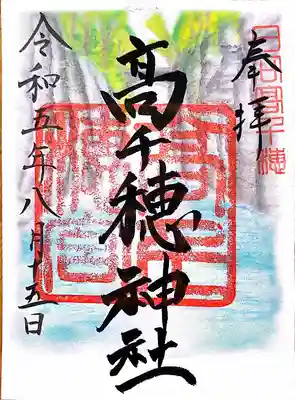 奉拝
日向高千穂
髙千穂神社
令和五年八月十五日